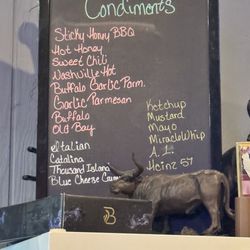 Condiments
Sticky Honey BBQ
Hot Honey
Sweet Chili
Nashville Hot
Buffalo Garlic Parm.
Garlic Parmesan
Buffalo
Old Bay
Italian
Catalina
Thousand Island
Blue Cheese
Ketchup
Mustard
Mayo
MiracleWhip
A.1.
Heinz 57
B